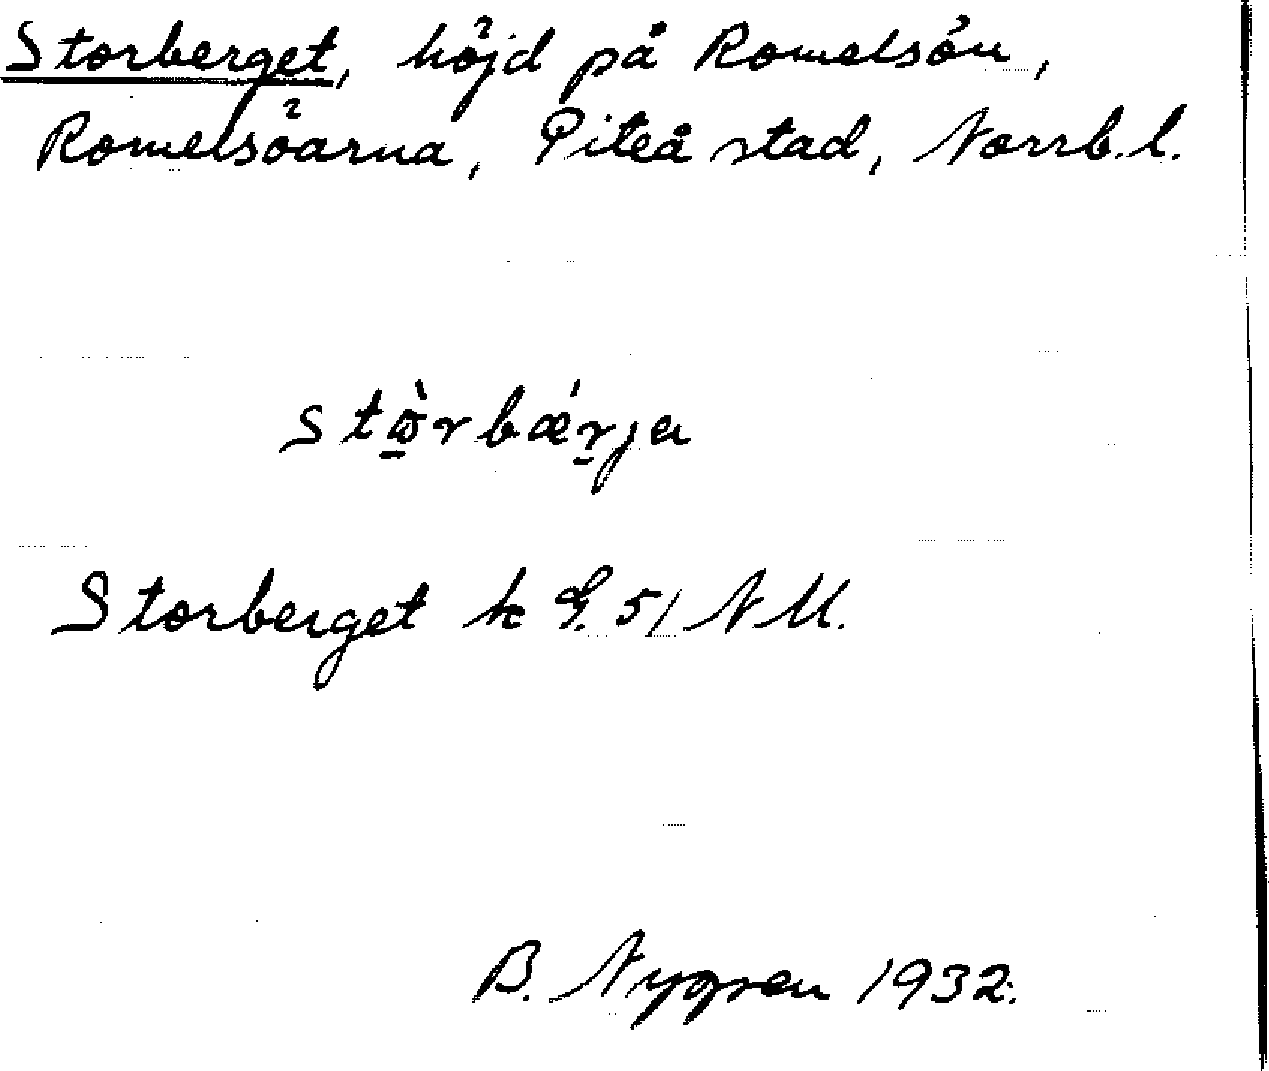 Storberget, höjd på Romelsön,
Romelsöarna, Piteå stad, Norrb. l.
stò̱rbǽṟja
Storberget k G. 51 N M.
B. Nygren 1932.